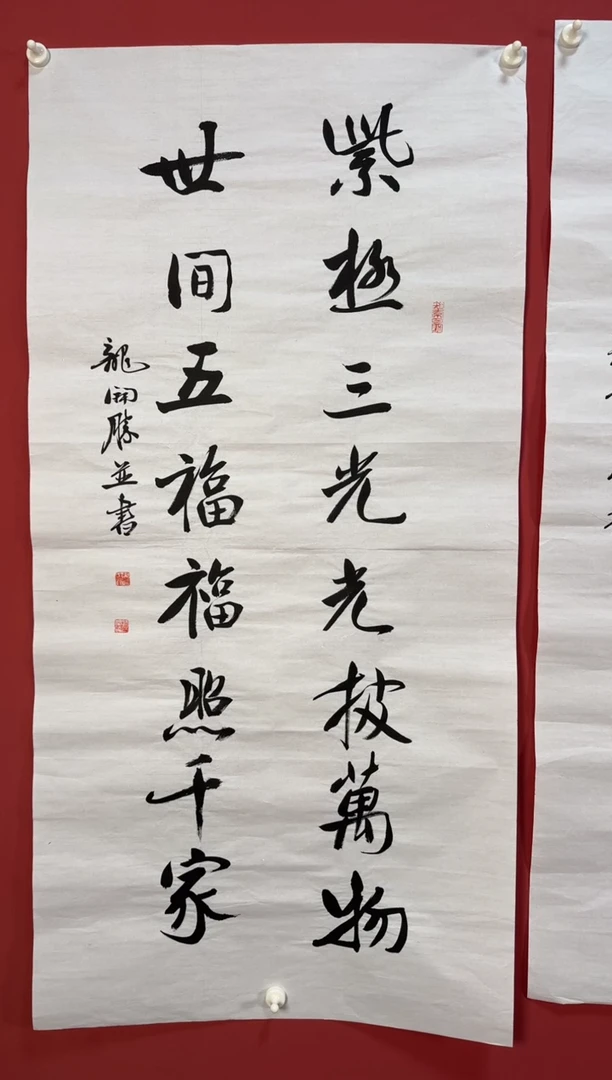 紫極三光光披萬物
世間五福福照千家
龍開勝並書